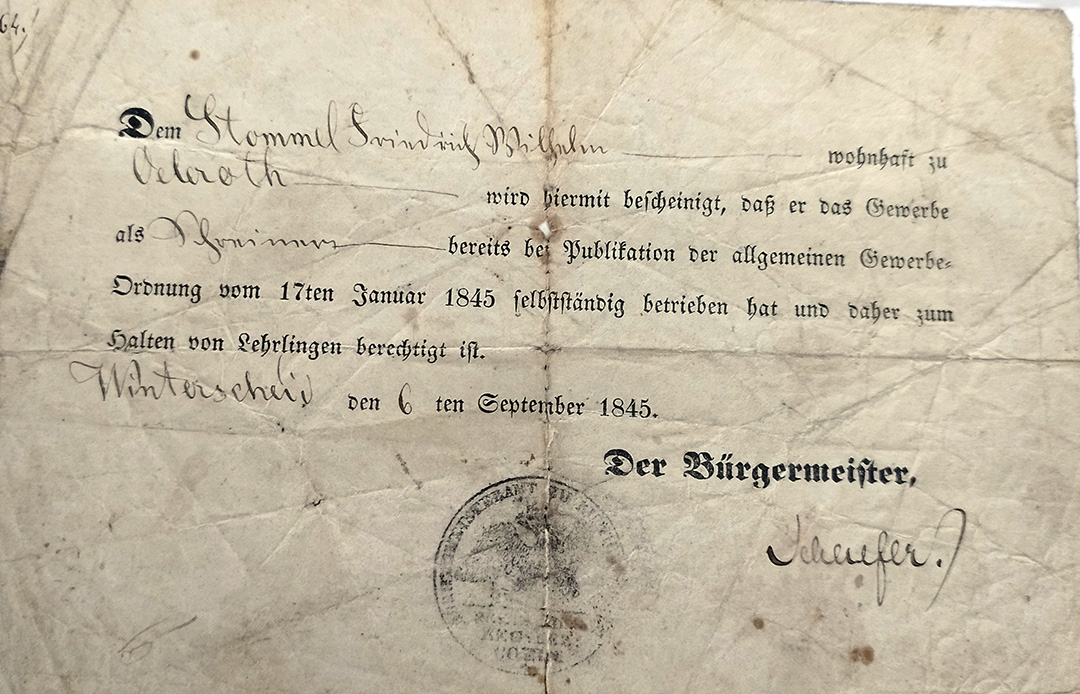 64.
Dem Stommel Friedrich Wilhelm wohnhaft zu
Oeleroth wird hiermit bescheinigt, daß er das Gewerbe
als Schreiner bereits bei Publikation der allgemeinen Gewerbe-
Ordnung vom 17ten Januar 1845 selbstständig betrieben hat und daher zum
Halten von Lehrlingen berechtigt ist.
Winterscheid den 6 ten September 1845.
Der Bürgermeister,
COELN